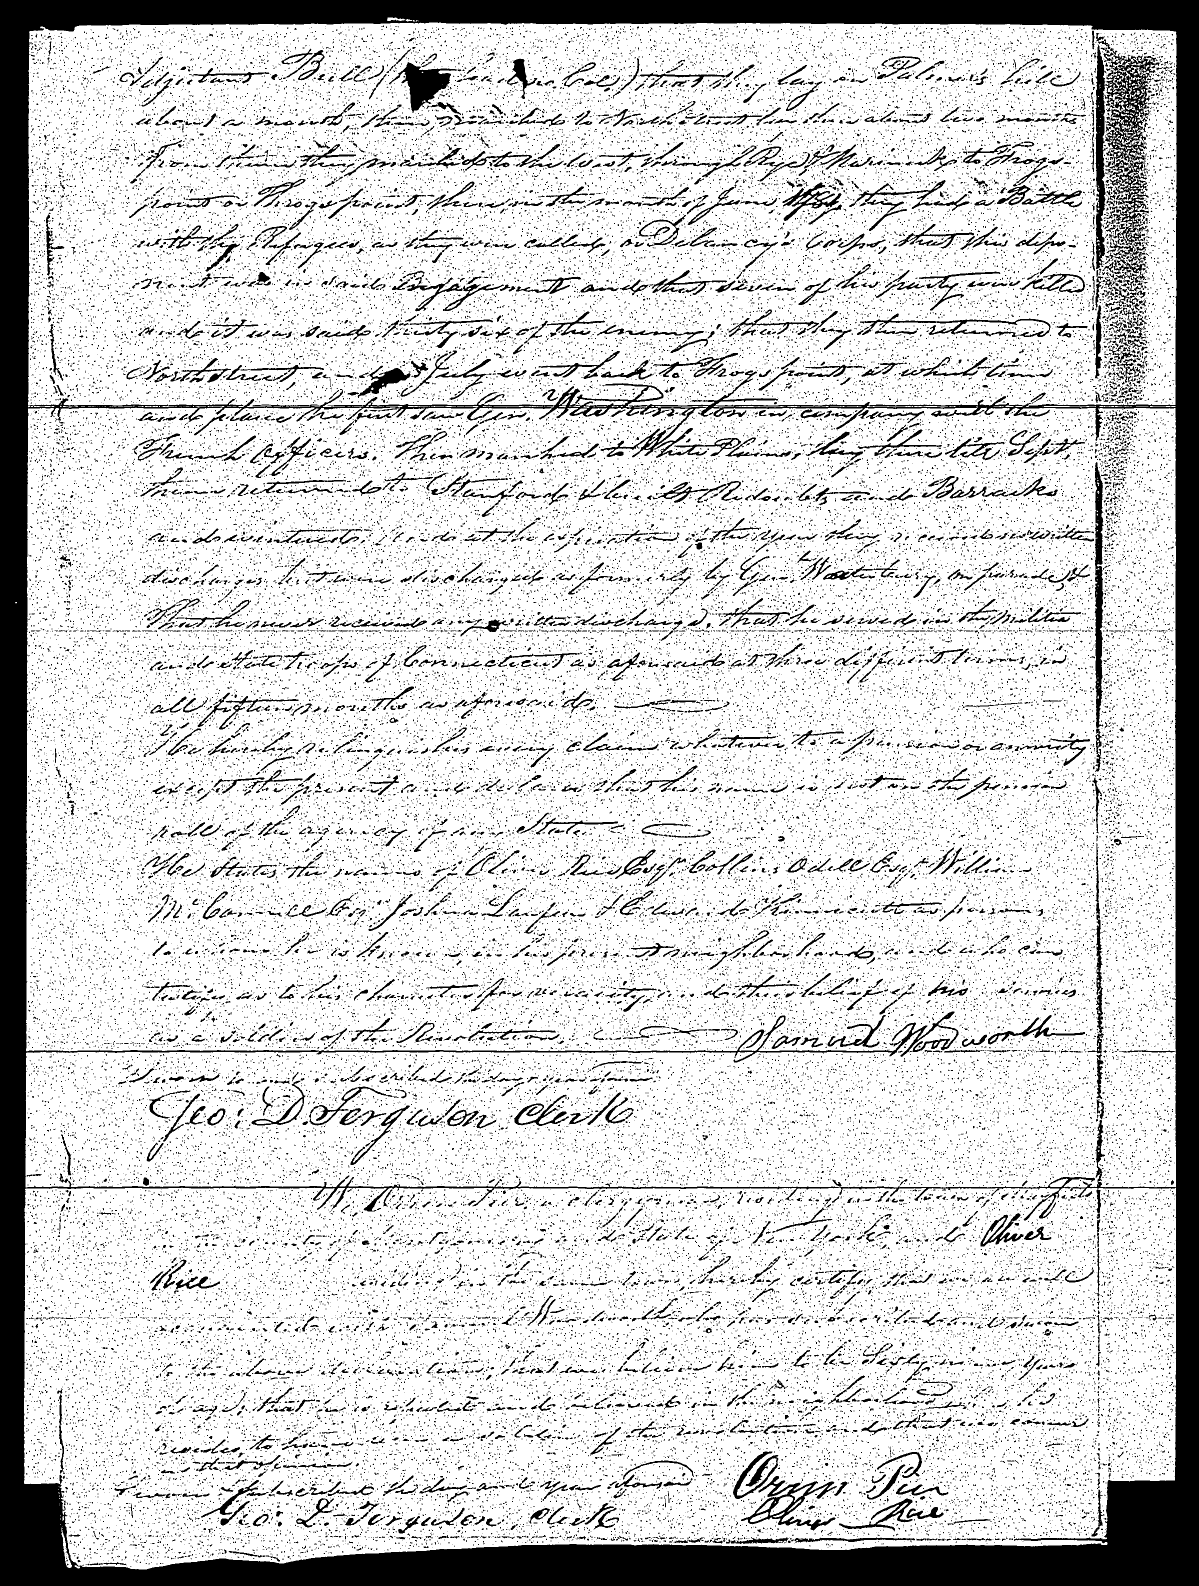 Adjutant Bull ( Col.) that they lay in Palmer's hill
about a month, then marched to North Street lay there about two months
From thence they marched to the West, through Rye & Marineck to Frogs-
point or Throgs point, there, in the month of June, 1781, they had a Battle
with the Refugees, as they were called, or Delancy's Corps, that this depo-
nent was in said Engagement and that seven of his party were killed
and it was said thirty six of the enemy; that they then returned to
North Street, and in July went back to Frogs point, at which time
and place he first saw Gen. Washington in company with the
French Officers. Then marched to White Plains, lay there till Sept.
then returned to Stanford & built Redoubts and Barracks
and wintered. And at the expiration of the year they received no written
discharges but were discharged as formerly by Genl. Waterbury, on parade, &
That he never received any written discharge. that he served in the militia
and State troops of Connecticut as aforesaid at three different terms, in
all fifteen months as aforesaid.
He hereby relinquishes every claim whatever to a pension or annuity
except the present and declares that his name is not on the pension
roll of the agency of any State
He States the names of Oliver Rice Esqr. Collins Odell Esqr. William
Mc. Esqr. Joshua & Edward Kinnicutt as persons
to whom he is known, in his present neighborhood, and who can
testify as to his character for veracity, and their belief of his services
as a soldier of the Revolution.
Samuel Woodworth
Sworn to and subscribed the day & year aforesaid
Geo: D. Ferguson Clerk
We Orrin Pier, a clergyman, residing in the town of
in the county of Montgomery and State of New York, and Oliver
Rice residing in the same town, hereby certify, that we are well
acquainted with Samuel Woodworth who has subscribed and sworn
to the above declaration, that we believe him to be Sixty nine years
of age, that he is reputed and believed in the neighborhood where he
resides, to have been a soldier of the revolution and that we concur
in that opinion.
Sworn & Subscribed the day and year aforesaid
Orrin Pier
Oliver Rice
Geo: D. Ferguson, clerk